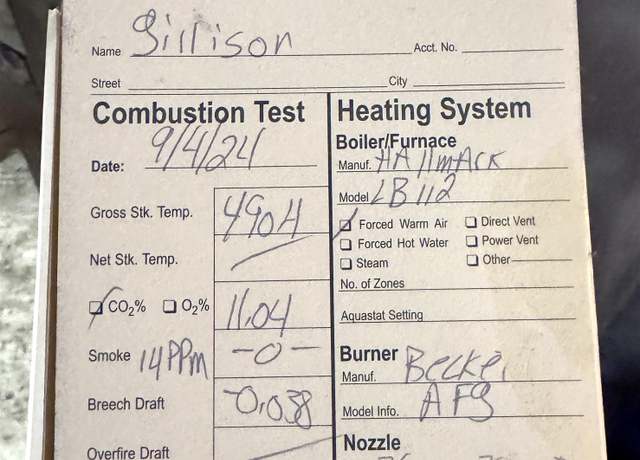 Name Gillison Acct. No.
Street City
Combustion Test
Date: 9/4/24
Gross Stk. Temp. 490.4
Net Stk. Temp.
CO2% O2% 11.04
Smoke 14 PPM -0-
Breech Draft -0.038
Overfire Draft
Heating System
Boiler/Furnace
Manuf. HAllmArk
Model LB 112
Forced Warm Air Direct Vent
Forced Hot Water Power Vent
Steam Other
No. of Zones
Aquastat Setting
Burner
Manuf. Becke
Model Info. AFG
Nozzle